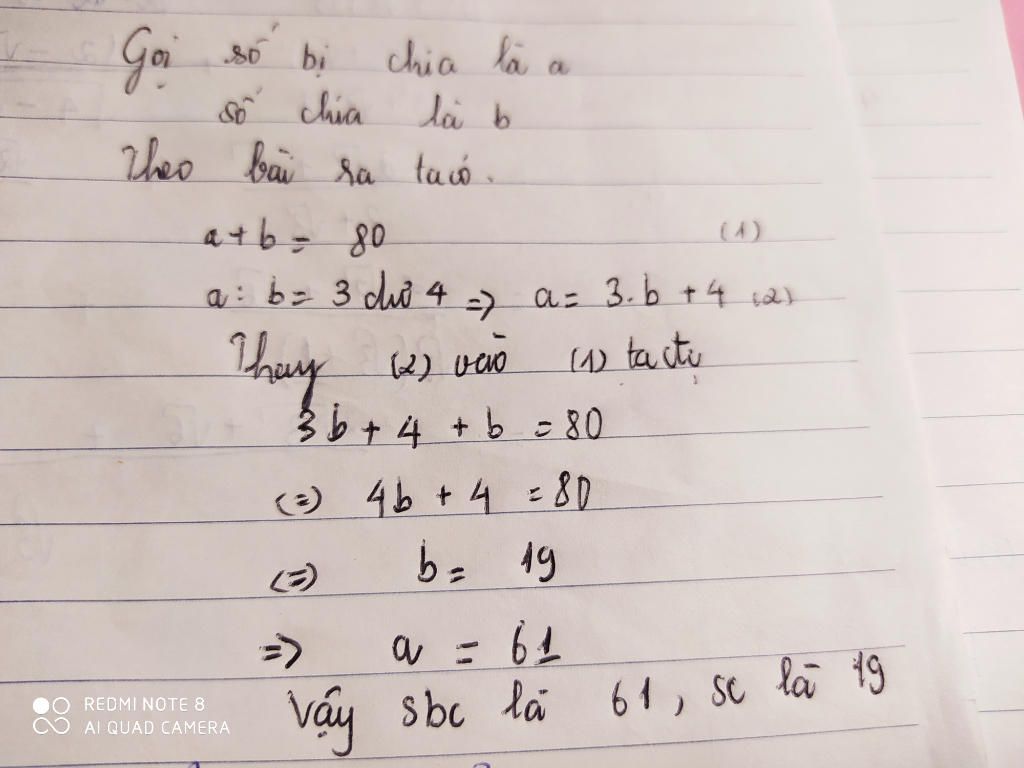 Gọi số bị chia là a
số chia là b
Theo bài ra ta có.
a + b = 80 (1)
a : b = 3 dư 4 => a = 3.b + 4 (2)
Thay (2) vào (1) ta
3b + 4 + b = 80
(=) 4b + 4 = 80
(=) b = 19
=> a = 61
Vậy sbc là 61, sc là 19
REDMI NOTE 8
AI QUAD CAMERA